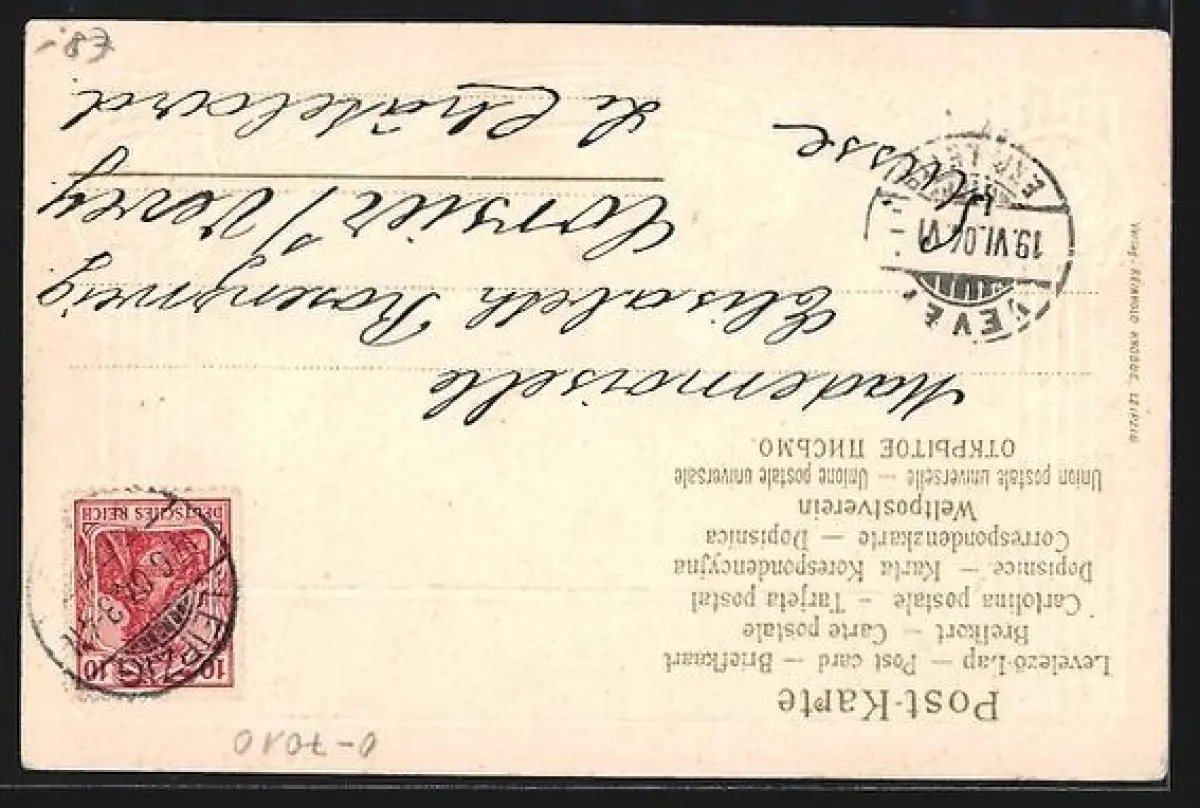 0-7010
Post-Karte
Levelező-Lap — Post card — Briefkaart
Brefkort — Carte postale
Cartolina postale — Tarjeta postal
Dopisnice — Karta Korespondencyjna
Correspondenzkarte — Dopisnica
Weltpostverein
Union postale universelle — Unione postale universale
ОТКРЫТОЕ ПИСЬМО.
10 10
DEUTSCHES REICH
LEIPZIG
Mademoiselle
Elisabeth Rosenzweig
Corsier s/ Vevey
Le Châtelard
Suisse
VEVEY
19.VI.04. VI
Verlag, REINHOLD KROBOLE, LEIPZIG